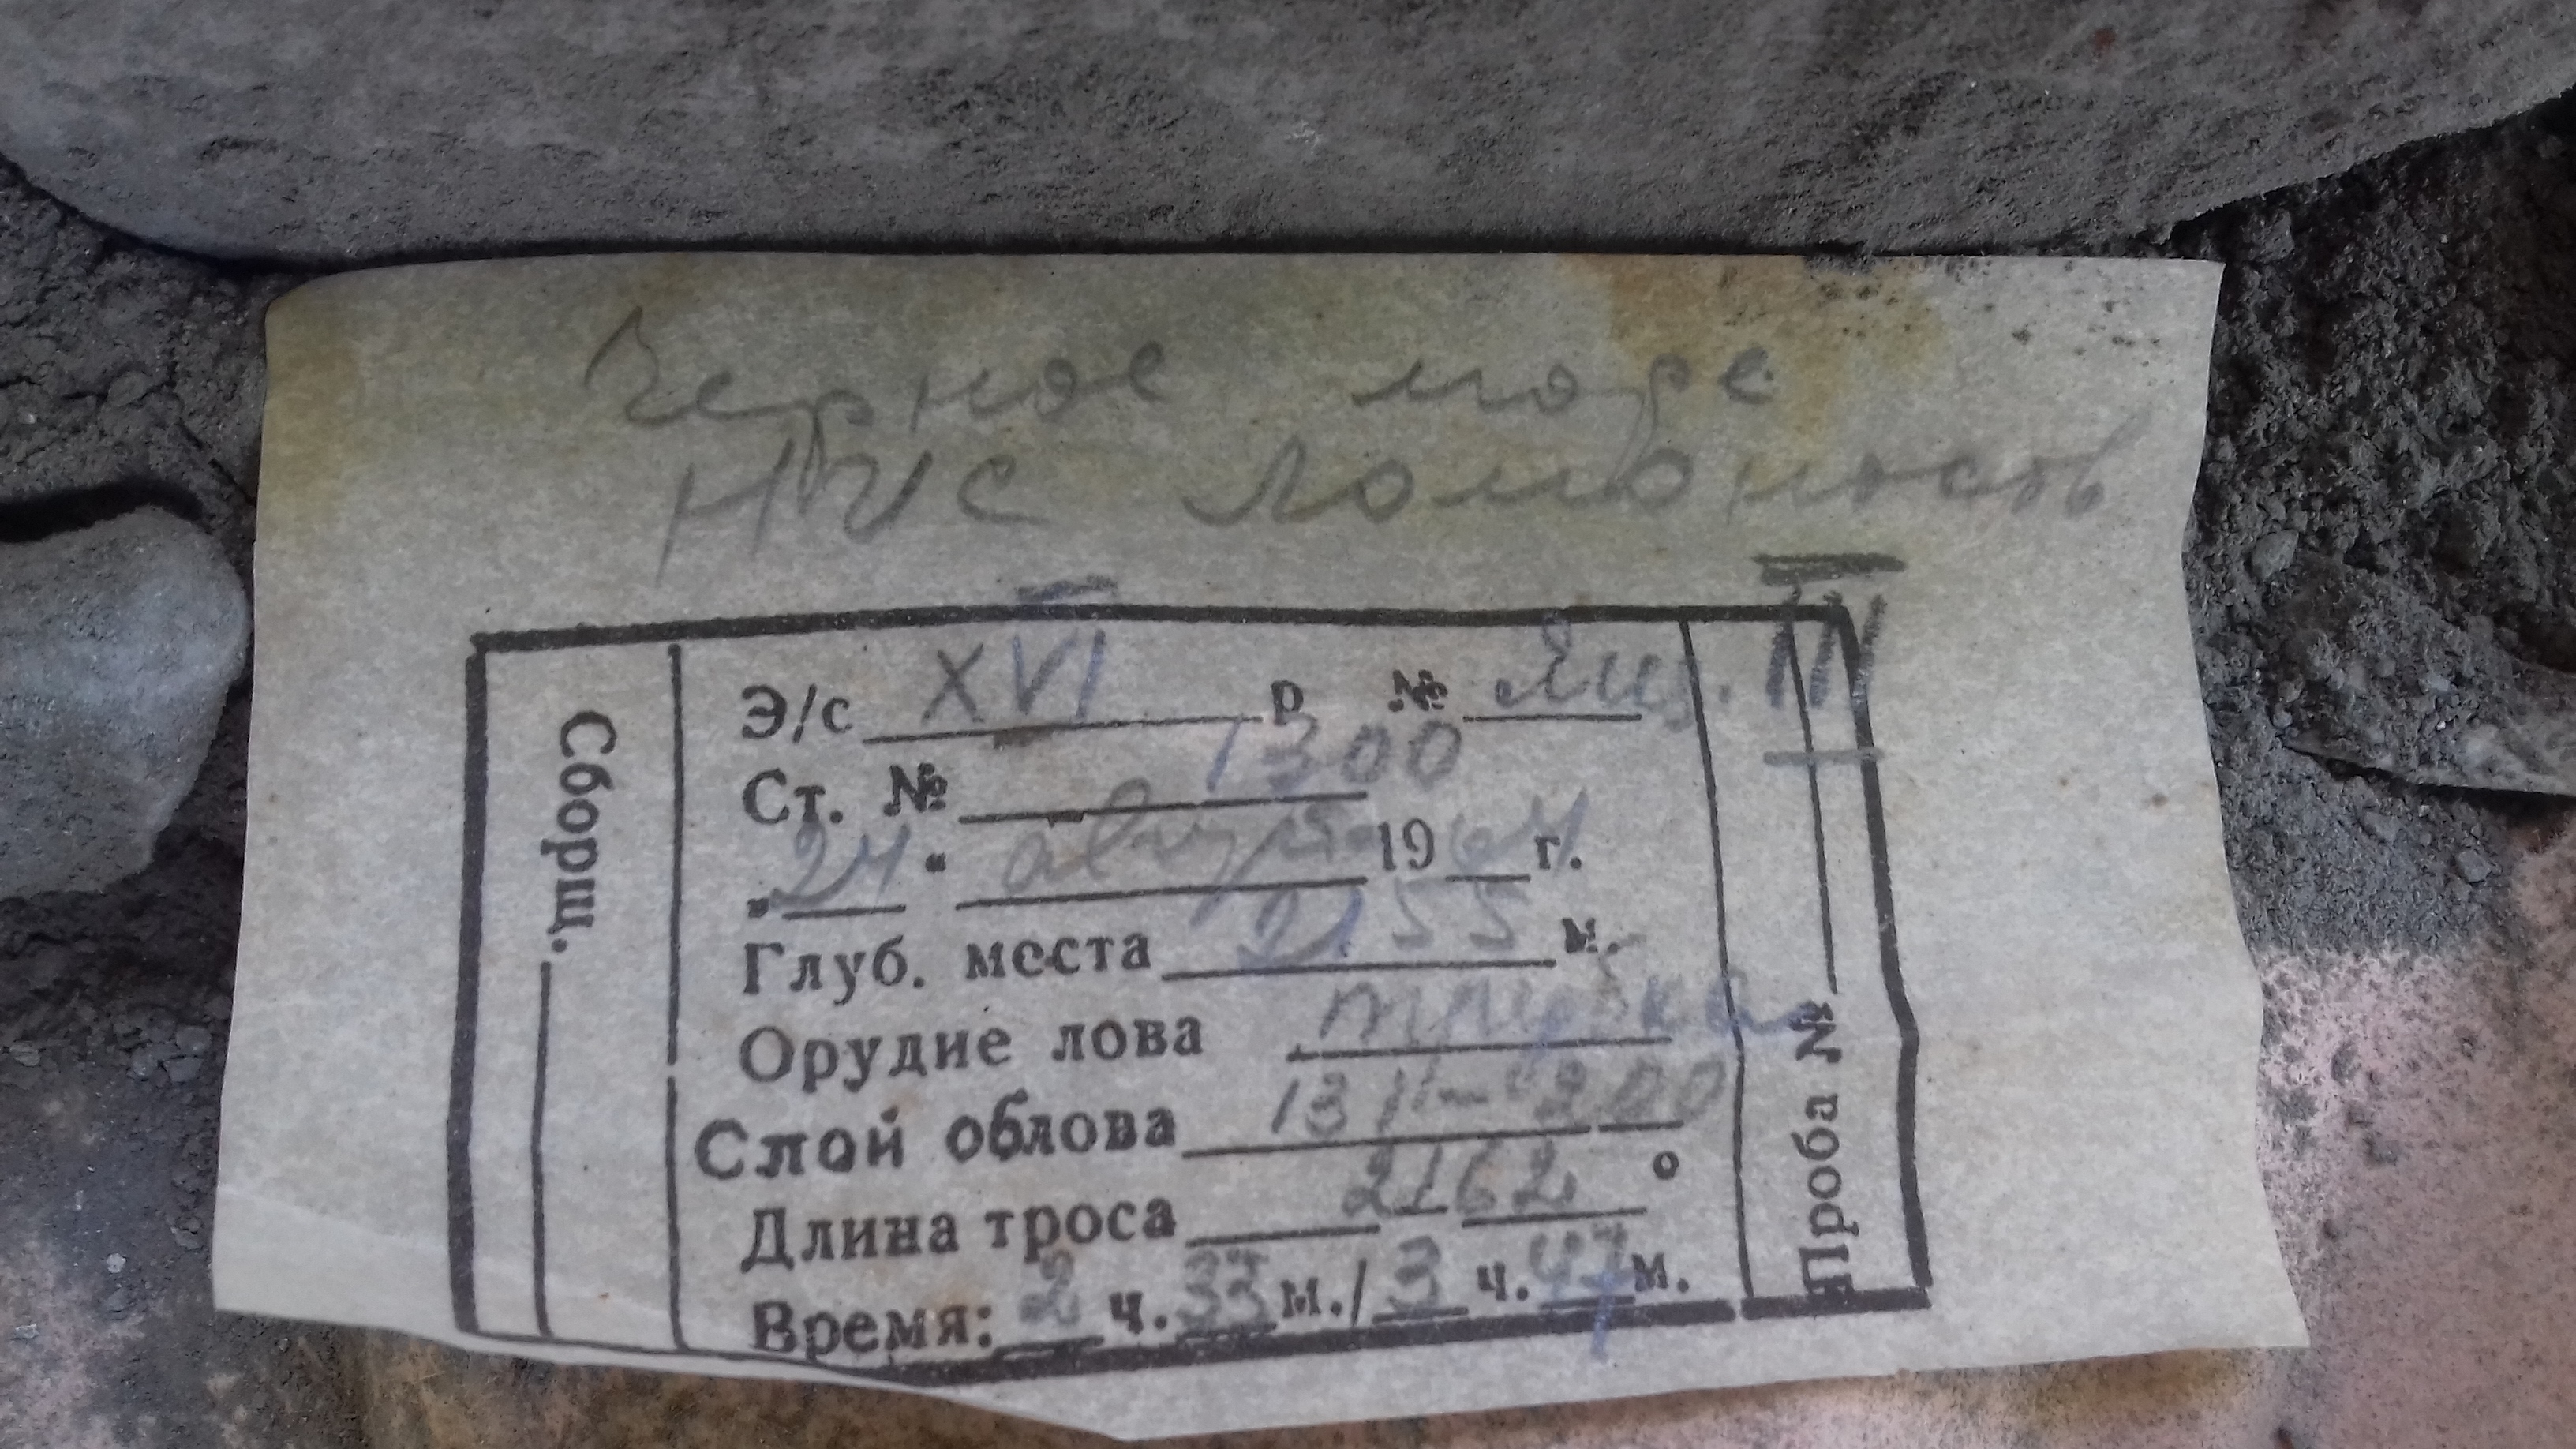 Черное море
НИС Ломоносов
Э/с XVI р. № Янц. III
Ст. № 1300
„24“ август 1964 г.
Глуб. места 2155 м.
Орудие лова трубка
Слой облова 1311-1200
Длина троса 2162 °
Время: 2 ч. 33 м./3 ч. 47 м.
Сборщ.
Проба №